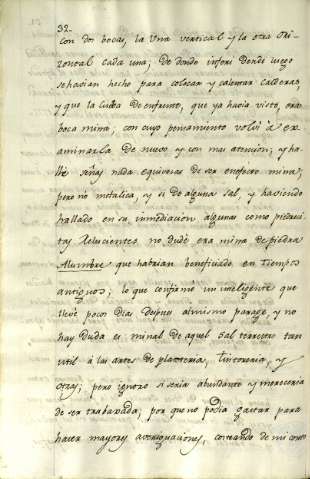 32.
con dos bocas, la una vertical y la otra Ori-
zontal cada una; de donde inferi desde luego
se havian hecho para colocar y calentar calderas,
y que la de enfrente, que ya havia visto, era
boca mina; con cuyo pensamiento volví à ex
aminarla de nuevo y con mas atencion; y ha-
llè señas nada equivocas de ser enefecto mina;
pero nò metalica, y si de alguna sal, y haviendo
hallado en su inmediacion algunas como piedreci-
tas relucientes no dudè era mina de piedra
Alumbre que habrian beneficiado en tiempos
antiguos; lo que confirmò un inteligente que
llevè pocos dias despues almismo parage, y no
hay duda es minal de aquel sal terrestre tan
util à las artes de plateria, tintoreria, y
otras; pero ignoro si seria abundante y mereceria
de ser trabaxada, por que no podia gastar para
hacer mayores averiguaciones, costeando de mi corto